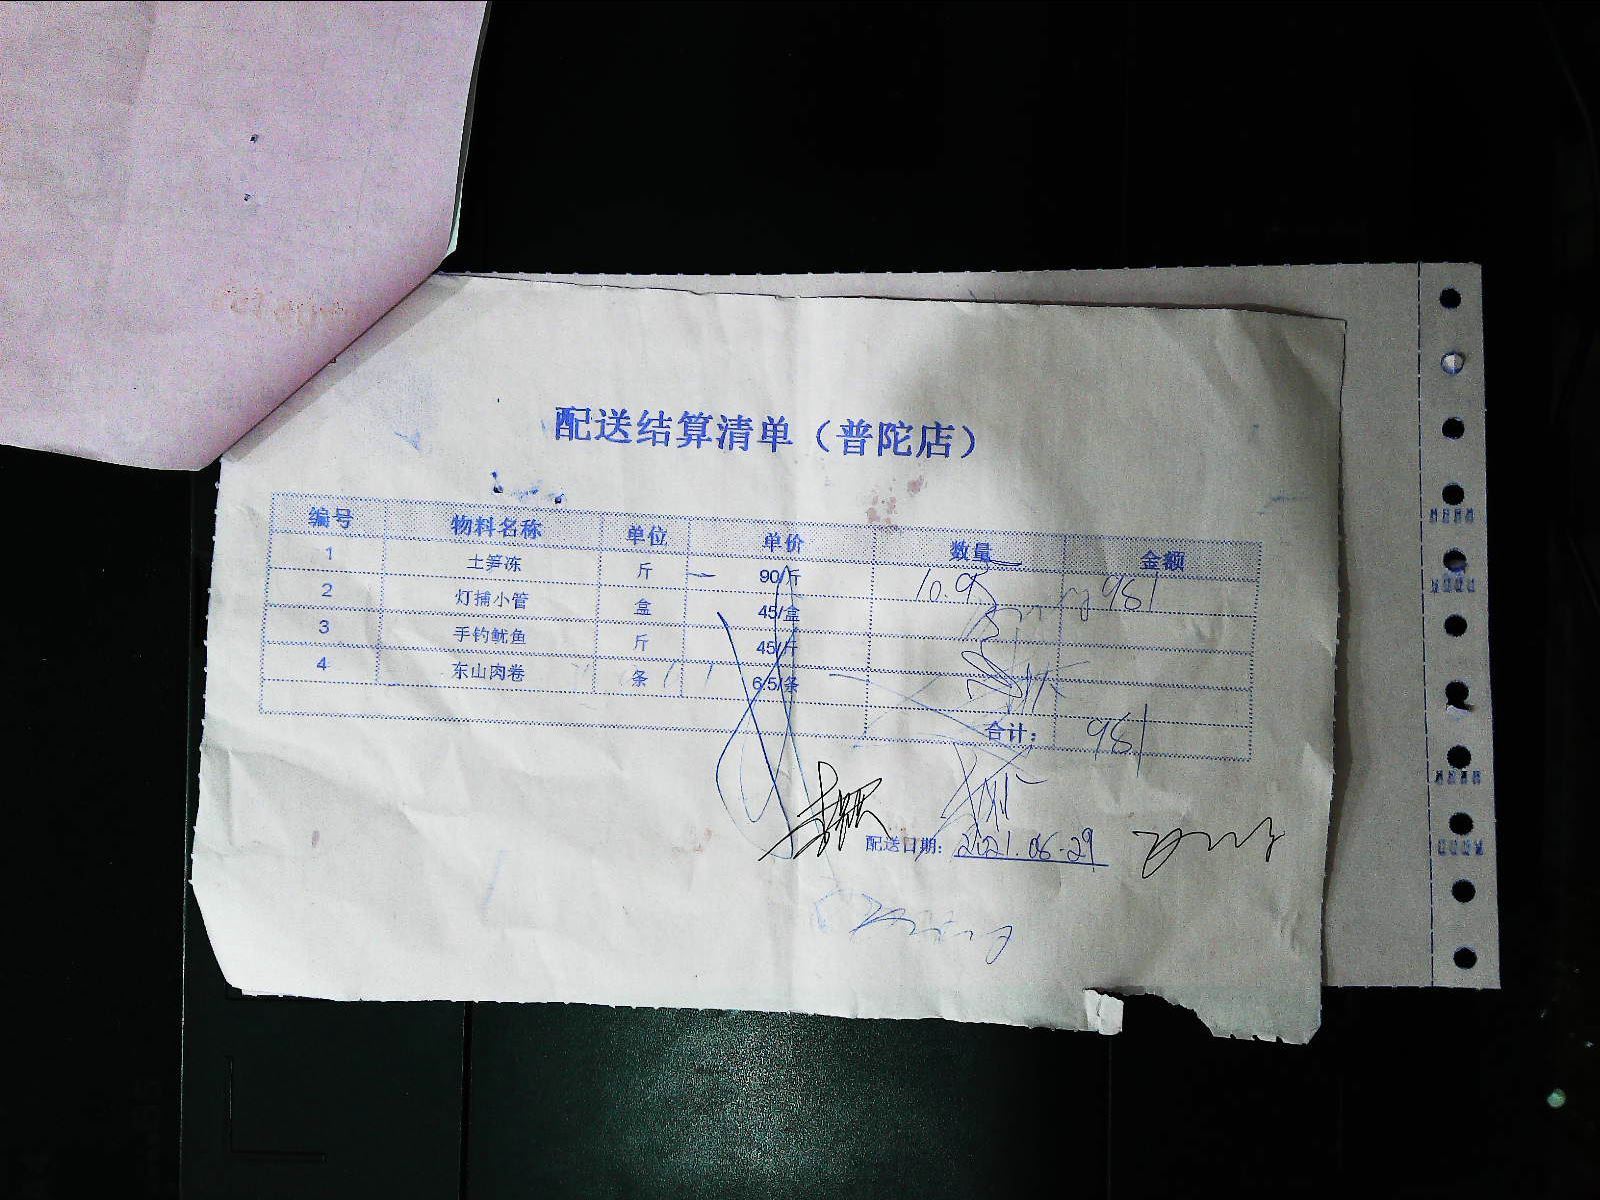 配送结算清单（普陀店）
编号 物料名称 单位 单价 数量 金额
1 土笋冻 斤 90/斤 10.95 981
2 灯捕小管 盒 45/盒
3 手钓鱿鱼 斤 45/斤
4 东山肉卷 条 6.5/条
合计： 981
配送日期： 2021.06-29